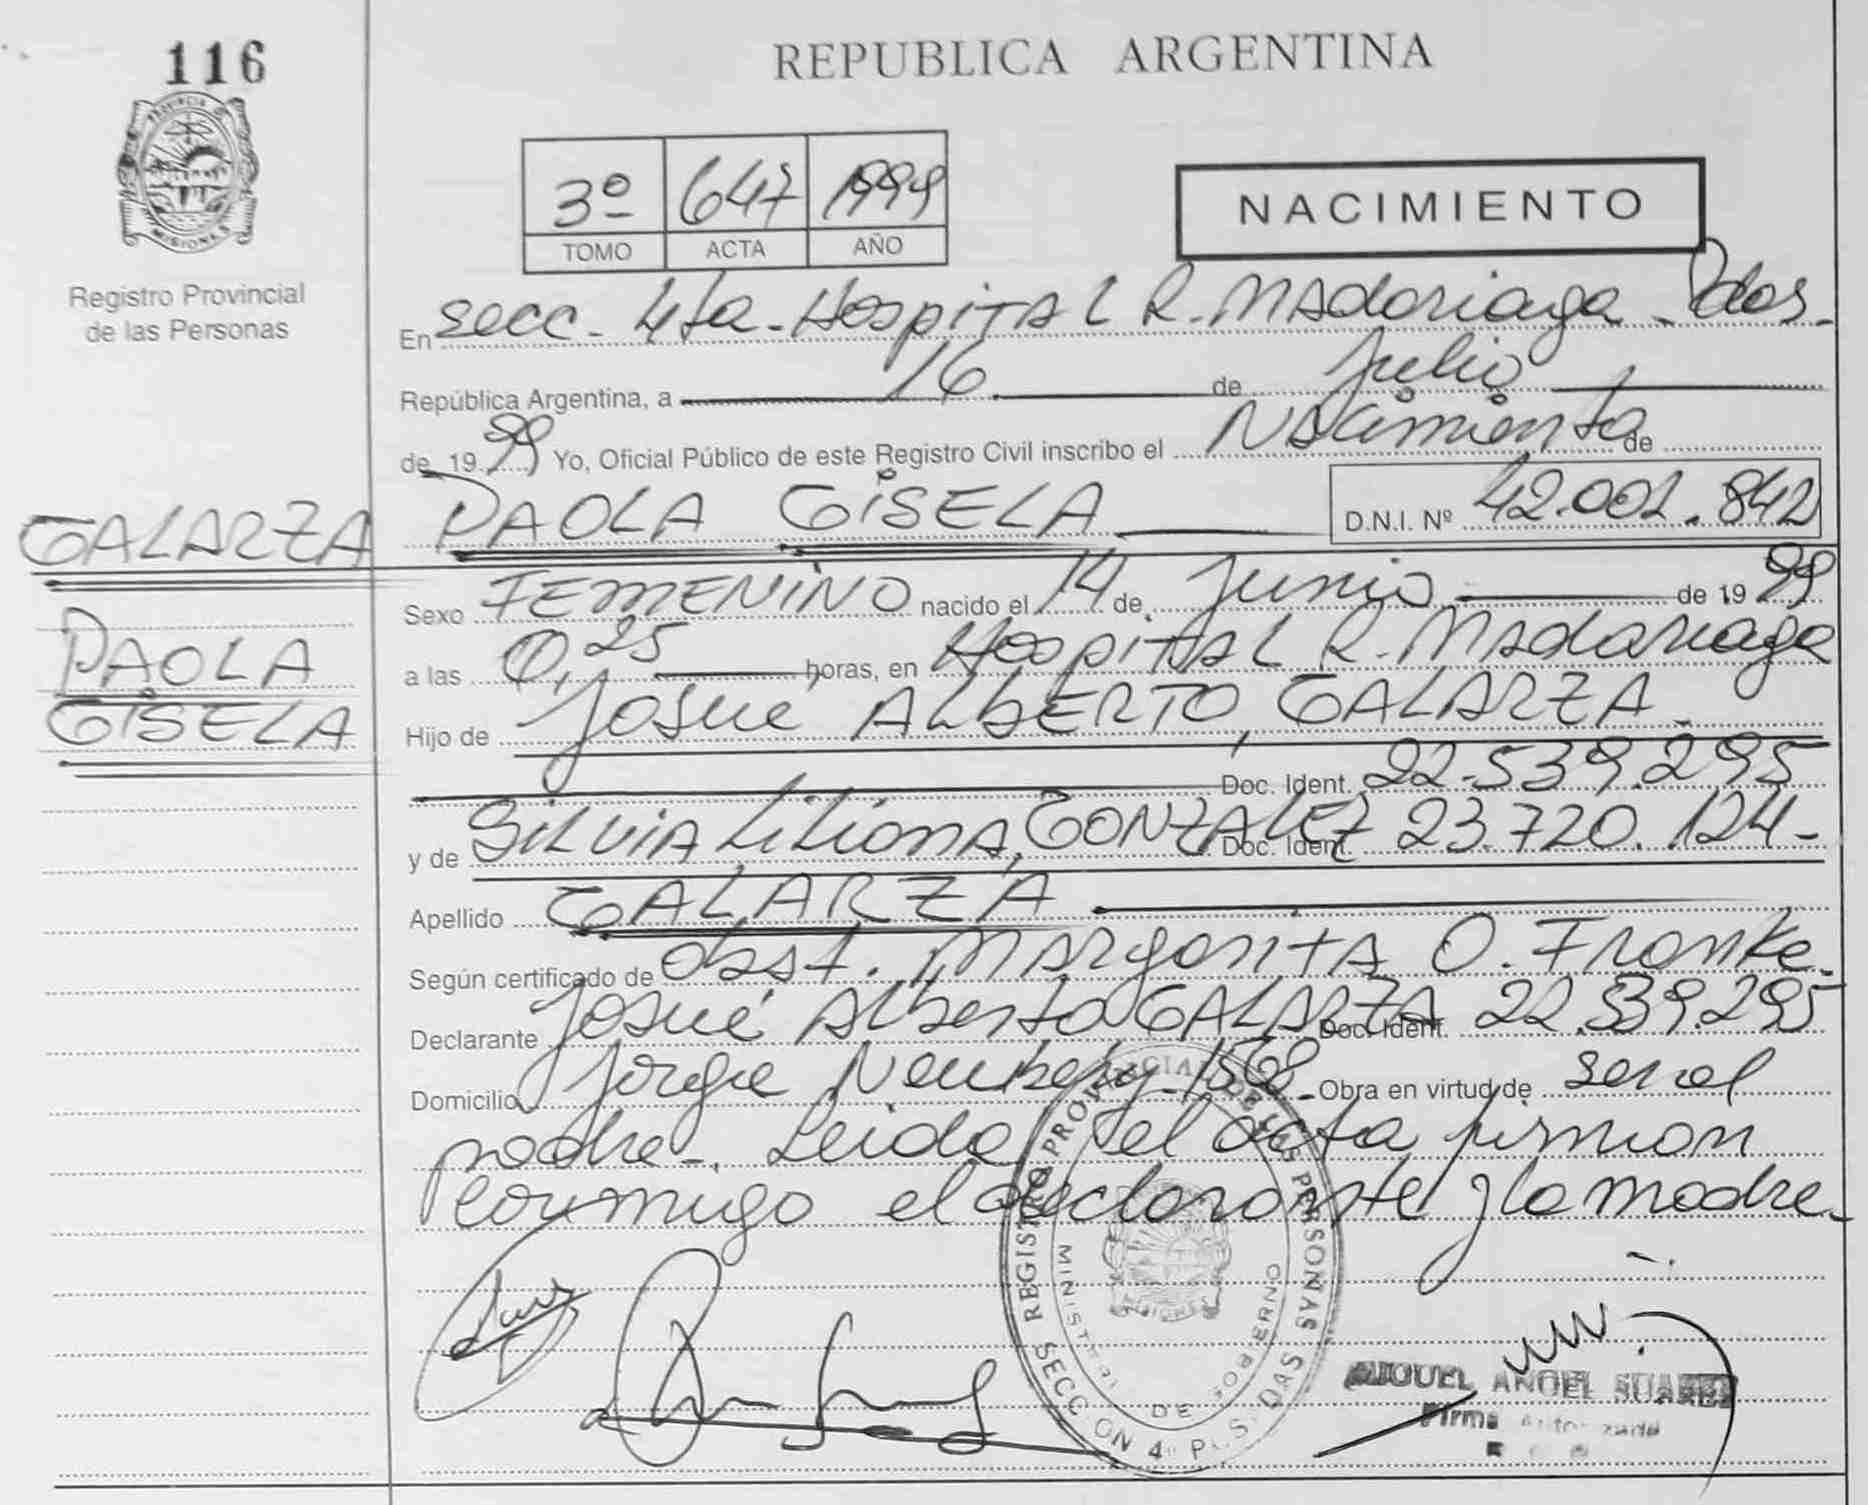 116
REPUBLICA ARGENTINA
PROVINCIA DE
MISIONES
Registro Provincial
de las Personas
3º 647 1999
TOMO ACTA AÑO
NACIMIENTO
En secc. 4ta. Hospital R. Madariaga - Pdas.
República Argentina, a 16 de Julio
de 1999 Yo, Oficial Público de este Registro Civil inscribo el Nacimiento de
GALARZA
PAOLA GISELA
D.N.I. Nº 42.001.842
PAOLA
GISELA
Sexo FEMENINO nacido el 14 de Junio de 1999
a las 0,25 horas, en Hospital R. Madariaga
Hijo de Josué ALBERTO, GALARZA.
Doc. Ident. 22.539.295
y de SILVIA Liliana, GONZALEZ Doc. Ident. 23.720.124-
Apellido GALARZA
Según certificado de obst. Margarita O. Franke.
Declarante Josué Alberto GALARZA Doc. Ident. 22.539.295
Domicilio Jorge Newbery 1568 - Obra en virtud de ser el
padre-. Leida el acta firman
conmigo el declarante y la madre.
REGISTRO PROVINCIAL DE LAS PERSONAS
MINISTERIO DE GOBIERNO
MISIONES
SECCION 4ª PSDAS
MIGUEL ANGEL SUAREZ
Firma Autorizada